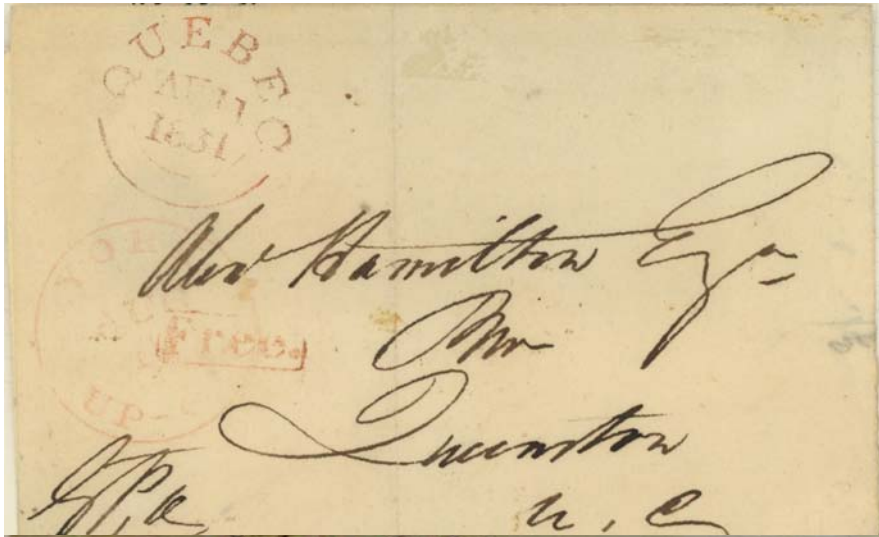 QUEBEC
1831
YORK
Free.
UP-C
Alexr Hamilton Esqr
PM
Queenston
U. C